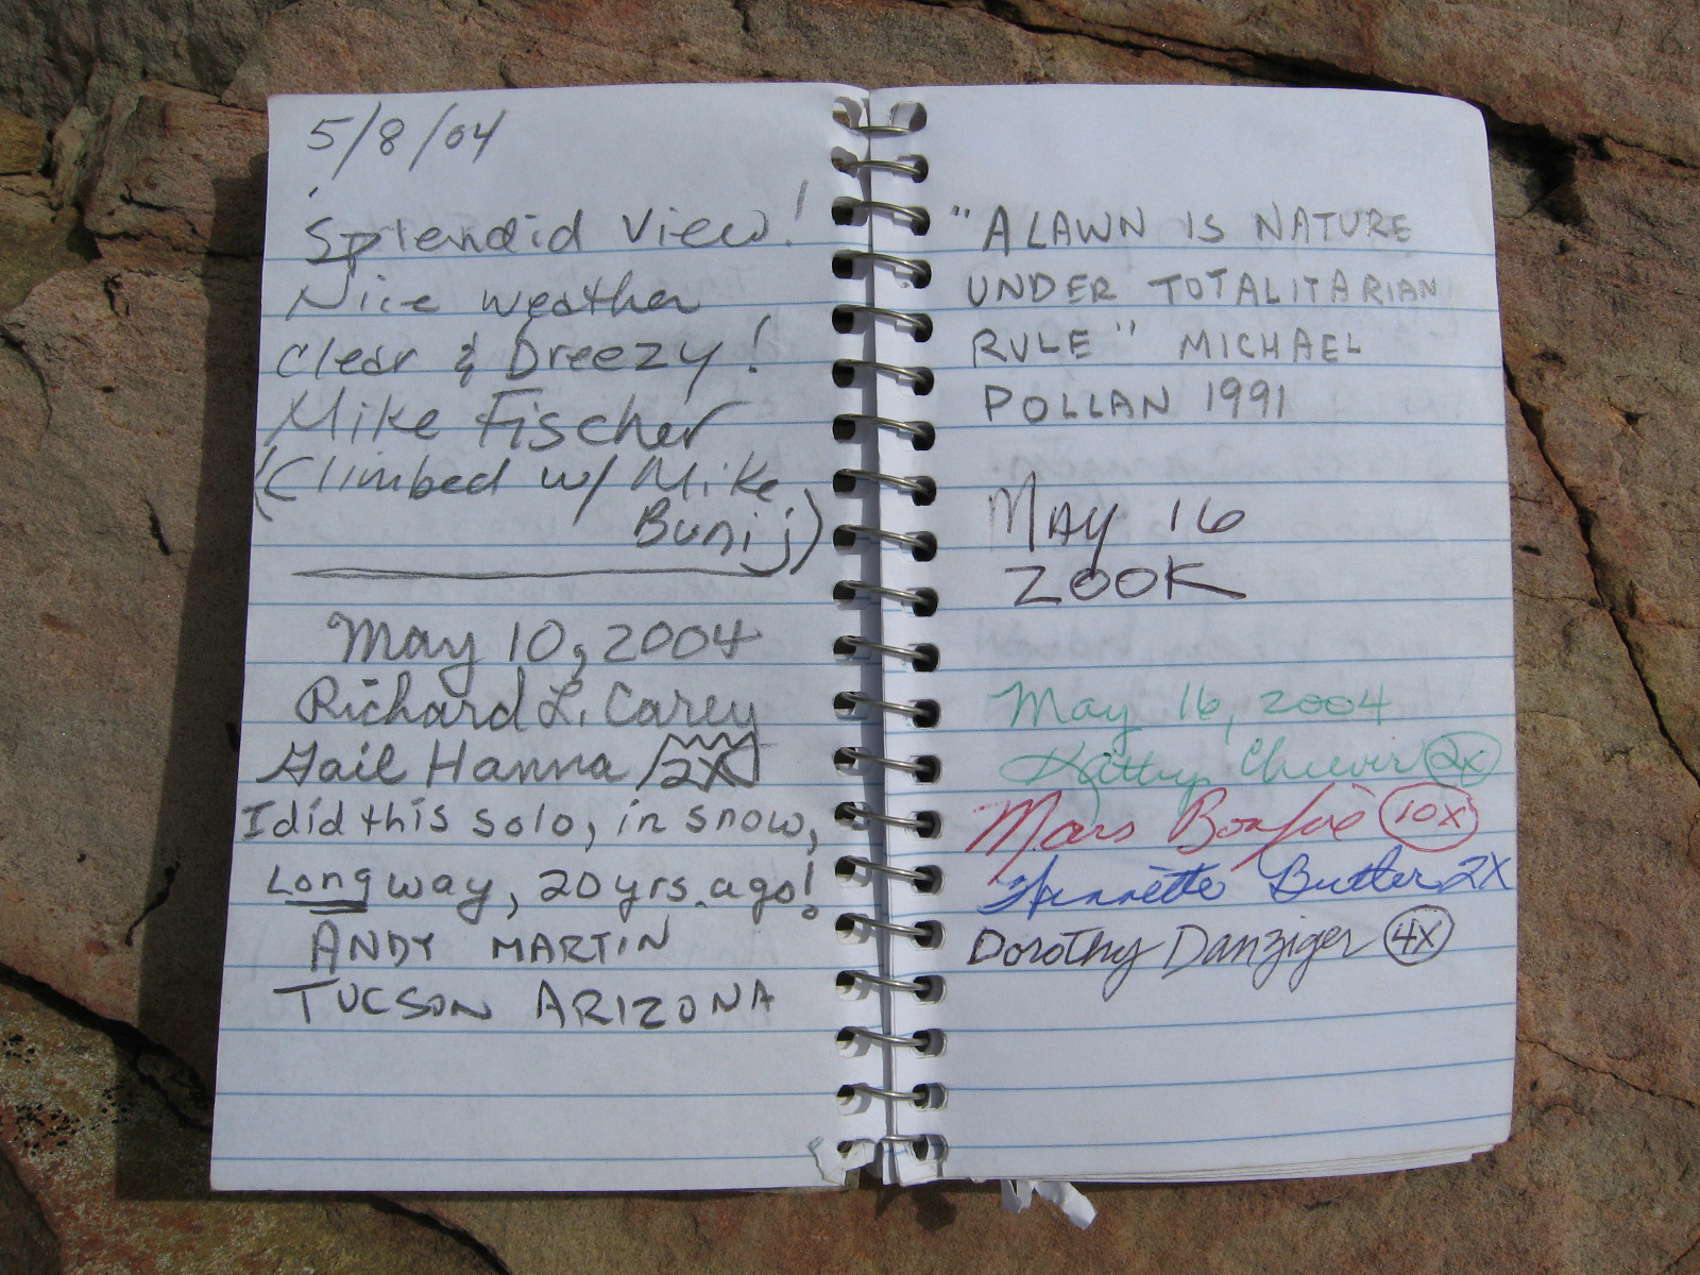 5/8/04
Splendid View!
Nice weather
Clear & Breezy!
Mike Fischer
(Climbed w/ Mike
Bunij)
May 10, 2004
Richard L. Carey
Gail Hanna 2X
I did this solo, in snow,
Long way, 20 yrs. ago!
ANDY MARTIN
TUCSON ARIZONA
"A LAWN IS NATURE
UNDER TOTALITARIAN
RULE" MICHAEL
POLLAN 1991
MAY 16
ZOOK
May 16, 2004
Kathy Cheever 2x
Mars Bonfire 10x
Henriette Butler 2X
Dorothy Danziger 4x